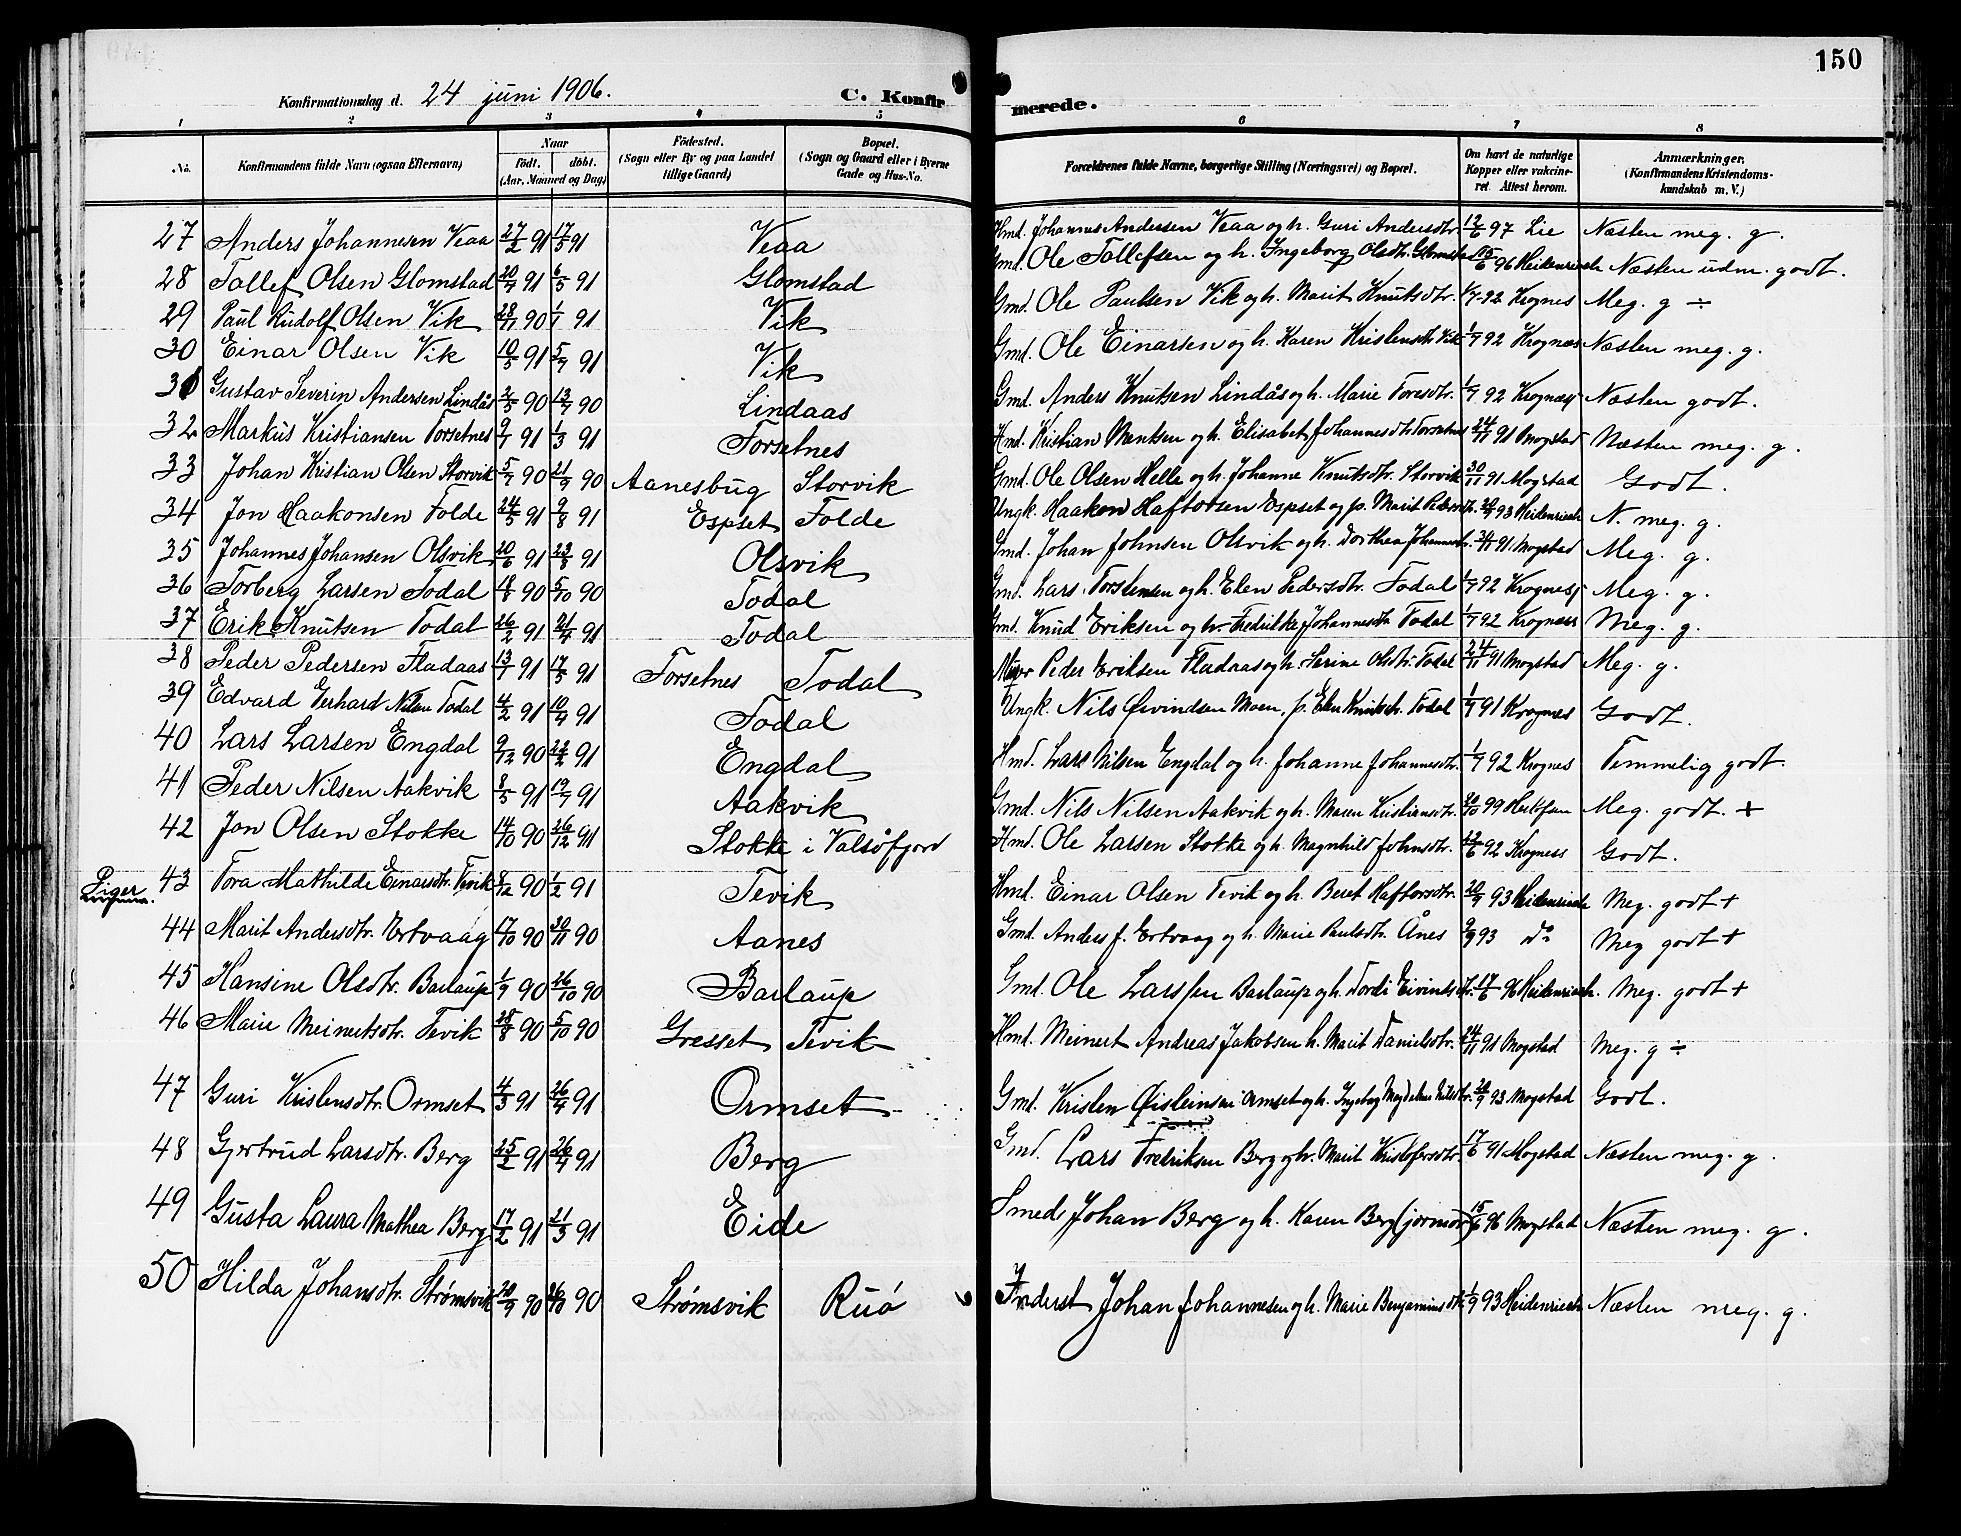 150
Konfirmationsdag d. 24 juni 1906. C. Konfirmerede.
1 2 3 4 5 6 7 8
No. Konfirmandens fulde Navn (ogsaa Efternavn) Naar født. døbt. (Aar, Maaned og Dag) Fødested. (Sogn eller By og paa Landet tillige Gaard) Bopæl. (Sogn og Gaard eller i Byerne Gade og Hus-No. Forældrenes fulde Navne, borgerlige Stilling (Næringsvei) og Bopæl. Om havt de naturlige Kopper eller vaccineret. Attest herom. Anmærkninger. (Konfirmandens Kristendomskundskab m. V.)
27 Anders Johannesen Veaa 27/2 91 17/5 91 Veaa Hmd. Johannes Andersen Veaa og h. Guri Andersdtr. 12/6 97 Lie Næsten meg. g.
28 Tollef Olsen Glomstad 20/4 91 6/5 91 Glomstad Gmd. Ole Tollefsen og h. Ingeborg Olsdtr. Glomstad 15/6 96 Heidenreich Næsten udm. godt.
29 Paul Rudolf Olsen Vik 28/11 90 1/1 91 Vik Gmd. Ole Paulsen Vik og h. Marit Knutsdtr. 1/7 92 Krognes Meg. g ÷
30 Einar Olsen Vik 10/5 91 5/7 91 Vik Gmd. Ole Einarsen og h. Karen Kristensdtr Vik 1/7 92 Krognæs Næsten meg. g.
31 Gustav Severin Andersen Lindås 2/5 90 13/7 90 Lindaas Gmd. Anders Knutsen Lindås og h. Marie Toresdtr. 1/7 92 Krognæs Næsten godt.
32 Markus Kristiansen Torsetnes 9/1 91 1/3 91 Torsetnes Hmd. Kristian Mentsen og h. Elisabet Johannesdtr. Torsetnes 24/11 91 Mogstad Næsten meg. g.
33 Johan Kristian Olsen Storvik 5/7 90 21/9 90 Aanesbug Storvik Gmd. Ole Olsen Helle og h. Johanne Knutsdtr. Storvik 30/11 91 Mogstad Godt.
34 Jon Haakonsen Folde 24/5 91 9/8 91 Espset Folde Ungk. Haakon Haftorsen Espset og p. Marit Pedersdtr. 20/9 93 Heidenreich N. meg. g.
35 Johannes Johansen Olsvik 20/6 91 23/8 91 Olsvik Gmd. Johan Johnsen Olsvik og h. Dorthea Johannesdtr. 24/11 91 Mogstad Meg. g.
36 Torberg Larsen Todal 18/8 90 5/10 90 Todal Gmd. Lars Torstensen og h. Elen Pedersdtr. Todal 1/7 92 Krogness Meg. g.
37 Erik Knutsen Todal 26/2 91 21/4 91 Todal Gmd. Knud Eriksen og h. Fredrikke Johannesdtr Todal 1/7 92 Krogness Meg. g.
38 Peder Pedersen Fladaas 13/1 91 17/5 91 Torsetnes Todal Peder Eriksen Fladaas og h. Serine Olsdtr. Todal 24/11 91 Mogstad Meg. g.
39 Edvard Gerhard Nilsen Todal 4/2 91 10/4 91 Todal Ungk. Nils Øivindsen Moen, p. Elen Knutsdtr. Todal 1/7 91 Krognes Godt.
40 Lars Larsen Engdal 9/12 90 22/2 91 Engdal Hmd. Lars Nilsen Engdal og h. Johanne Johannesdtr. 1/7 92 Krognes Temmelig godt.
41 Peder Nilsen Aakvik 8/5 91 19/7 91 Aakvik Gmd. Nils Nilsen Aakvik og h. Maren Kristiansdtr. 20/10 99 Meg. godt. +
42 Jon Olsen Stokke 14/10 90 26/12 91 Stokke i Valsøfjord Hmd. Ole Larsen Stokke og h. Magnhild Johnsdtr. 12/6 92 Krogness Godt.
Piger
43 Tora Mathilde Einarsdtr. Tevik 8/12 90 1/2 91 Tevik Hmd. Einar Olsen Tevik og h. Beret Haftorsdtr. 20/9 93 Heidenreich Meg. godt +
44 Marit Andersdtr. Ertvaag 17/10 90 30/11 90 Aanes Gmd. Anders J. Ertvaag og h. Marie Paulsdtr. Ånes 9/9 93 do Meg godt +
45 Hansine Olsdtr. Barlaup 1/9 90 26/10 90 Barlaup Gmd. Ole Larssen Barlaup og h. Dordi Eivindsdtr. 17/6 96 Heidenreich. Meg. godt +
46 Marie Meinertsdtr. Tevik 28/8 90 5/10 90 Gresset Tevik Hmd. Meinert Andreas Jakobsen h. Marit Danielsdtr. 24/11 91 Mogstad Meg. g ÷
47 Guri Kristensdtr. Ormset 4/3 91 26/4 91 Ormset Gmd. Kristen Øisteinsen Ormset og h. Ingeborg Magdalena Nilsdtr. 20/9 93 Mogstad Godt.
48 Gjertrud Larsdtr. Berg 25/2 91 26/4 91 Berg Gmd. Lars Fredriksen Berg og h. Marit Kristofersdtr. 17/6 91 Mogstad Næsten meg. g.
49 Gusta Laura Mathea Berg 17/2 91 21/3 91 Eide Smed Johan Berg og h. Karen Berg (jormor) 15/6 96 Mogstad Næsten meg. g.
50 Hilda Johansdtr. Strømsvik 20/9 90 26/10 90 Strømsvik Ruø Inderst Johan Johannesen og h. Marie Benjaminsdtr. 1/9 93 Heidenreich Næsten meg. g.